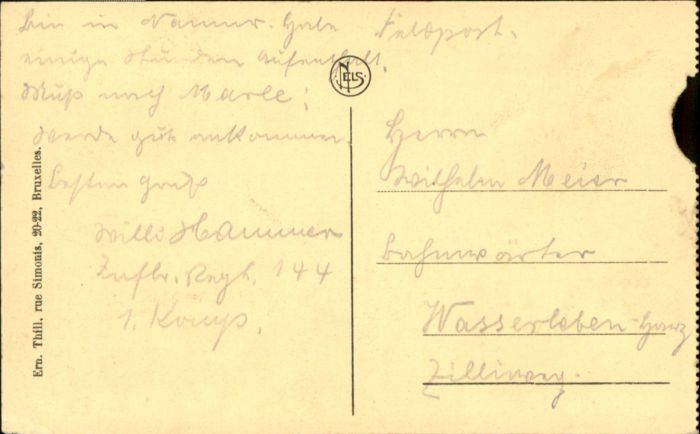 Bin in Namur. Habe
einige Stunden Aufenthalt.
Muß nach Marle;
werde gut ankommen.
besten Gruß
Willi Hammer
Inftr. Regt. 144
1. Komp.
Feldpost.
NELS
Herrn
Wilhelm Meier
Bahnwärter
Wasserleben-Harz
Zilliweg.
Ern. Thill, rue Simonis, 20-22, Bruxelles.